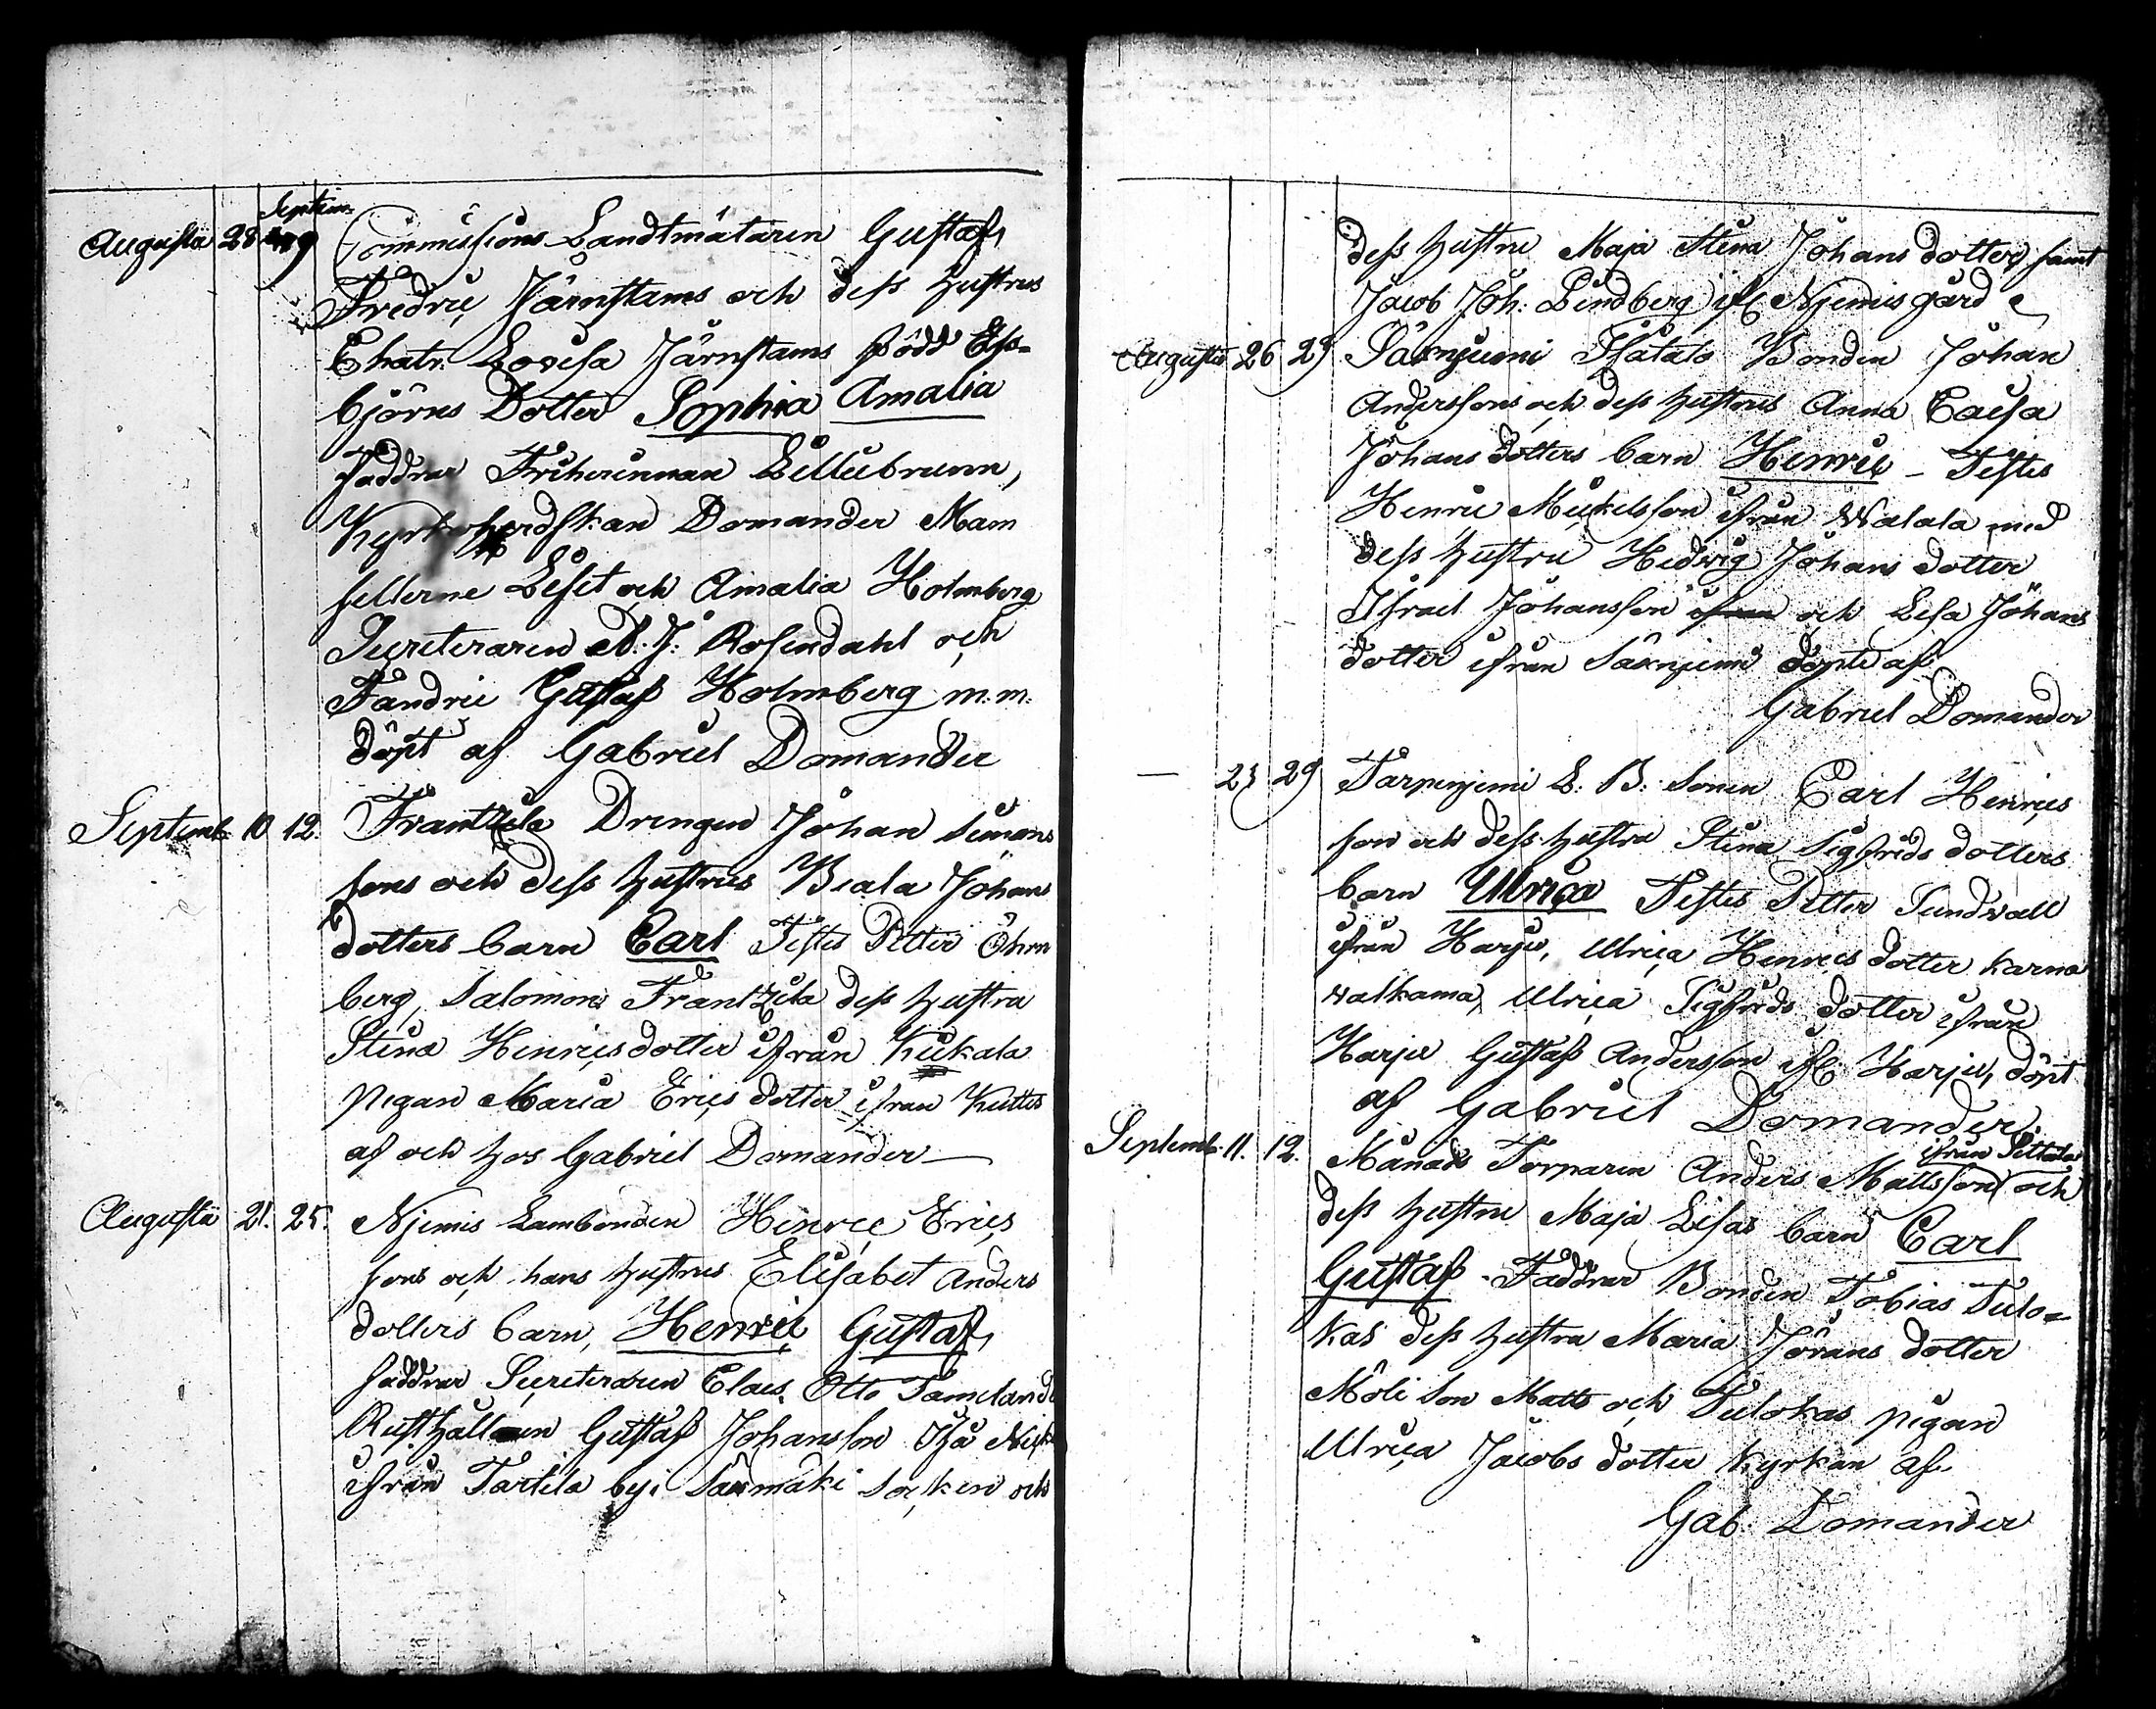 Septem:
Augusti 28 9 Commissions Landtmätaren Gustaf
Fredric Järnstams och dess hustrus
Chatr. Lovisa Järnstams född Ess-
björns Dotter Sophia Amalia
Faddrar Friherinnan Lilliebrunn,
Kyrkoherdskan Domander Mam
sellerne Liset och Amalia Holmberg
Secreteraren A. J: Rosendahl och
Fändric Gustaf Holmberg m.m.
döpt af Gabriel Domander
Septemb 10 12. Frantzila Drengen Johan Simons
sons och dess hustrus Beata Johans
dotters barn Carl Testes Petter Öhm
berg, Salomon Frantzila dess hustru
Stina Henricsdotter ifrån Kiikala
pigan Maria Erics dotter ifran
af och hos Gabriel Domander
Augusti 21. 25. Njemis Lambonden Henric Erics
sons och hans hustrus Elisabet Anders
dotters barn, Henric Gustaf,
faddrar Secreteraren Claes Otto
Rusthållaren Gustaf Johansson
ifrån Tartila by i Sääxmäki Socken och
dess hustru Maja Stina Johans dotter, samt
Jacob Joh: Lindberg if: Njemis gård
Augusti 26 29 Bonden Johan
Anderssons och dess hustrus Anna Caisa
Johans dotters barn Henric - Testes
Henric Mickelsson ifrån Walala med
dess hustru Hedvig Johans dotter
Israel Johansson och Lisa Johans
dotter ifrån döpte af
Gabriel Domander
— 23 29 Tarpenjemi L: B: Sonen Carl Henrics
son och dess hustru Stina Sigfreds dotters
barn Ulrica Testes Petter Sundvall
ifrån Harju, Ulrica Henrics dotter Karna
walkama, Ulrica Sigfreds dotter ifrån
Harju Gustaf Andersson if: Harju, döpt
af Gabriel Domander.
ifrån Pettula
Septemb. 11. 12. Månads Torparen Anders Mattsson och
dess hustru Maja Lisas barn Carl
Gustaf - Faddrar Bonden Tobias Tulo-
kas dess hustru Maria Jörans dotter
Möli Son Matts och Tulokas pigan
Ulrica Jacobs dotter Kyrkan af
Gab. Domander